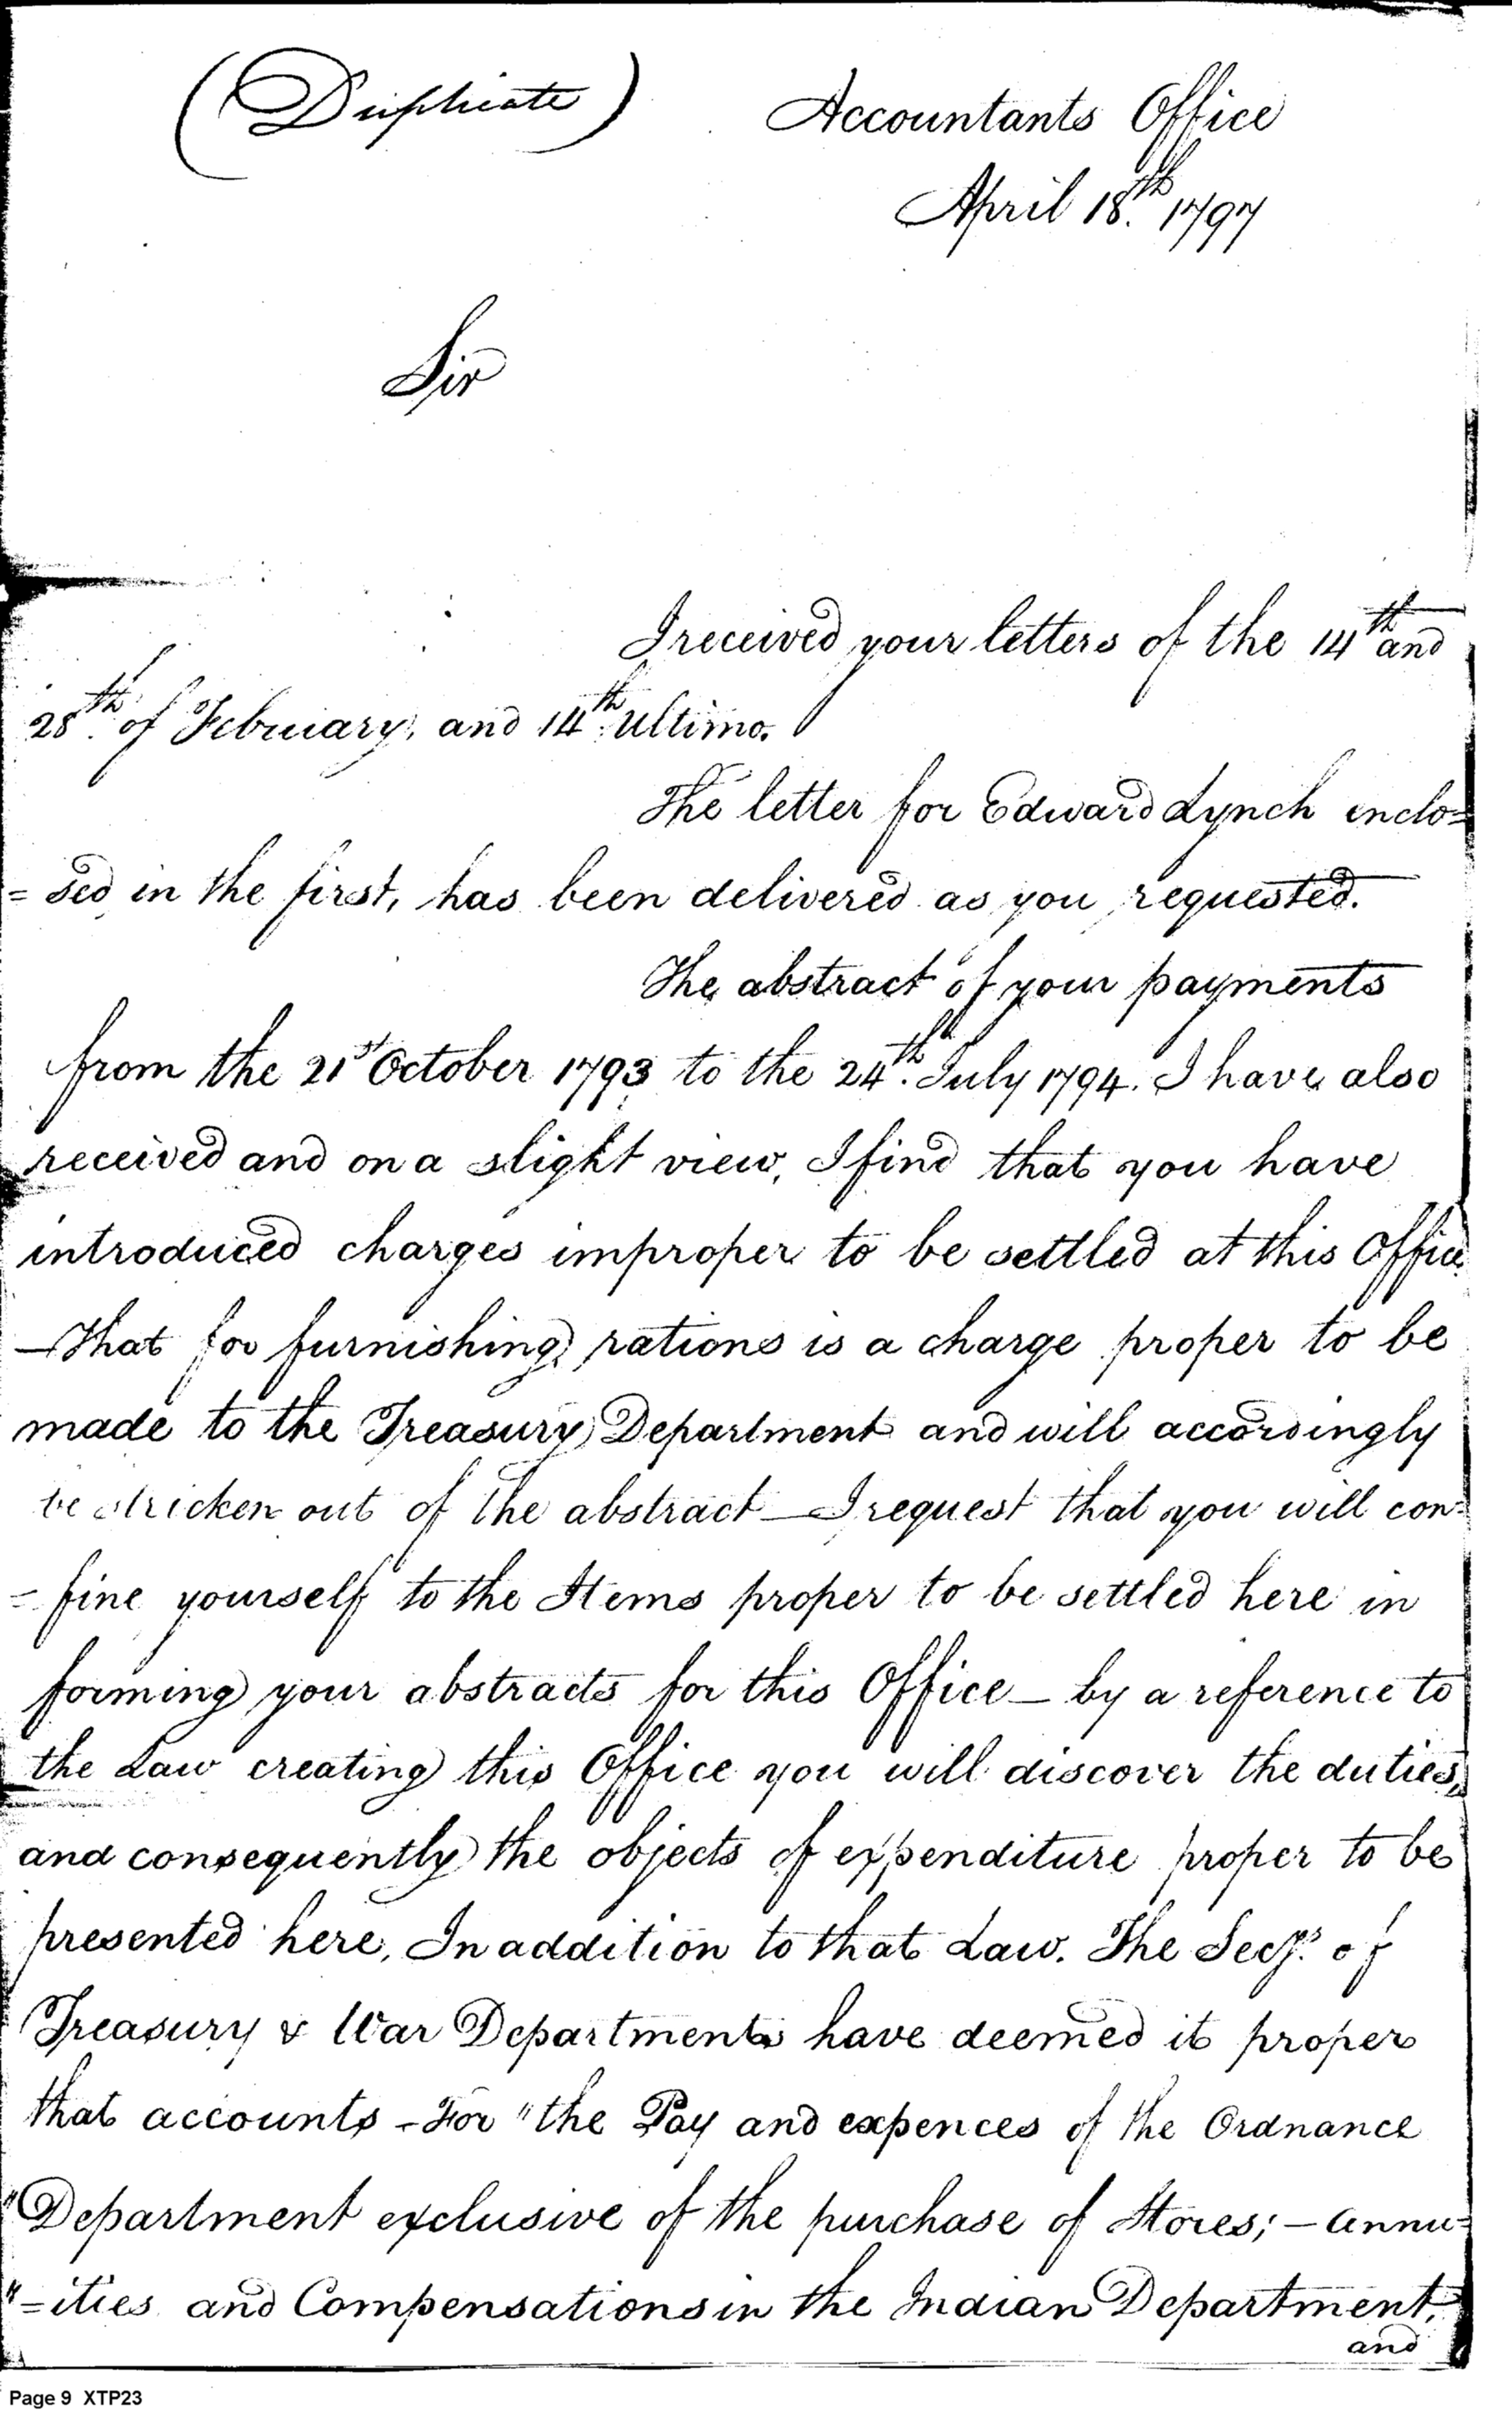 (Duplicate)
Accountants Office
April 18.th 1797
Sir
I received your letters of the 14th and
28th. of February, and 14th. Ultimo.
The letter for Edward Lynch enclo=
=sed in the first, has been delivered as you requested.
The abstract of your payments
from the 21st October 1793 to the 24th. July 1794. I have also
received and on a slight view, I find that you have
introduced charges improper to be settled at this Office
—That for furnishing rations is a charge proper to be
made to the Treasury Department and will accordingly
be stricken out of the abstract — I request that you will con=
=fine yourself to the Items proper to be settled here in
forming your abstracts for this Office — by a reference to
the Law creating this Office you will discover the duties,
and consequently the objects of expenditure proper to be
presented here, In addition to that Law. The Secys. of
Treasury & War Departments have deemed it proper
that accounts - For "the Pay and expences of the Ordnance
"Department exclusive of the purchase of Stores; — annu=
"=ities and Compensations in the Indian Department,
and
Page 9 XTP23